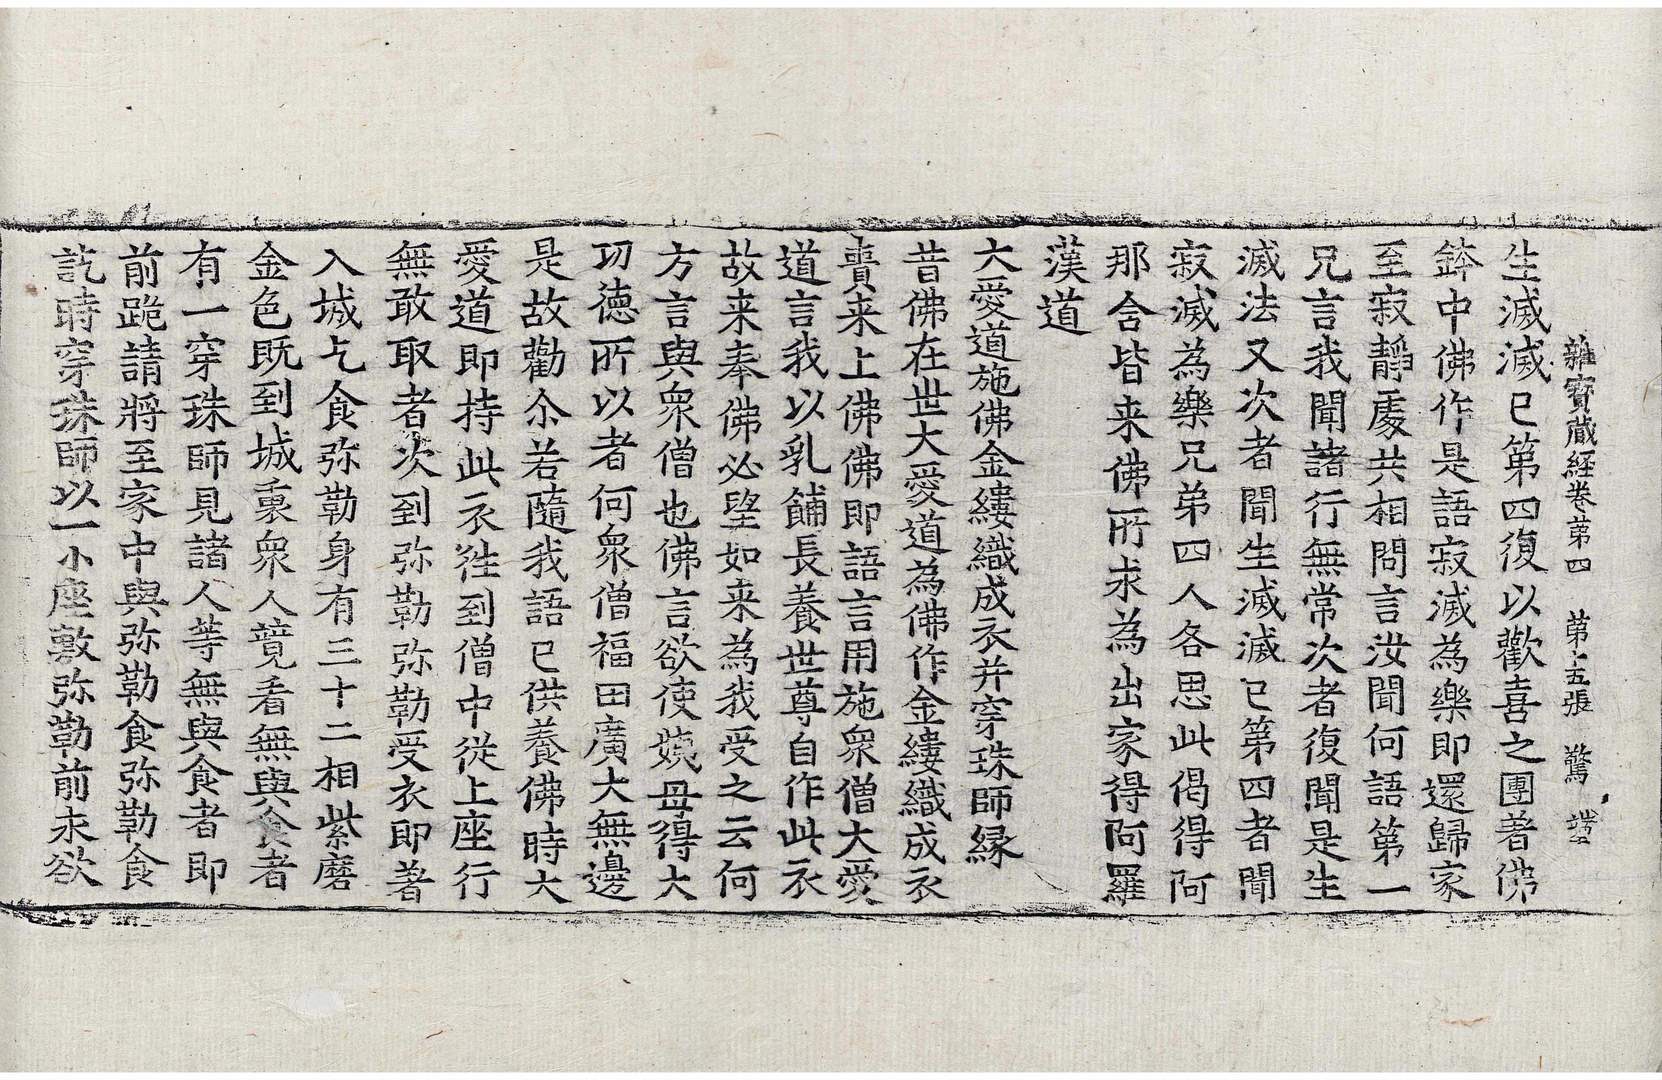 雜寶藏經卷第四 第十五張 驚
生滅滅已第四復以歡喜之團著佛
鉢中佛作是語寂滅為樂即還歸家
至寂靜處共相問言汝聞何語第一
兄言我聞諸行無常次者復聞是生
滅法又次者聞生滅滅已第四者聞
寂滅為樂兄弟四人各思此偈得阿
那含皆来佛所求為出家得阿羅
漢道
大愛道施佛金縷織成衣并穿珠師緣
昔佛在世大愛道為佛作金縷織成衣
賷来上佛佛即語言用施衆僧大愛
道言我以乳餔長養世尊自作此衣
故来奉佛必望如来為我受之云何
方言與衆僧也佛言欲使姨母得大
功德所以者何衆僧福田廣大無邊
是故勸尒若隨我語已供養佛時大
愛道即持此衣徃到僧中従上座行
無敢取者次到弥勒弥勒受衣即著
入城乞食弥勒身有三十二相紫磨
金色既到城裏衆人競看無與食者
有一穿珠師見諸人等無與食者即
前跪請將至家中與弥勒食弥勒食
訖時穿珠師以一小座敷弥勒前求欲